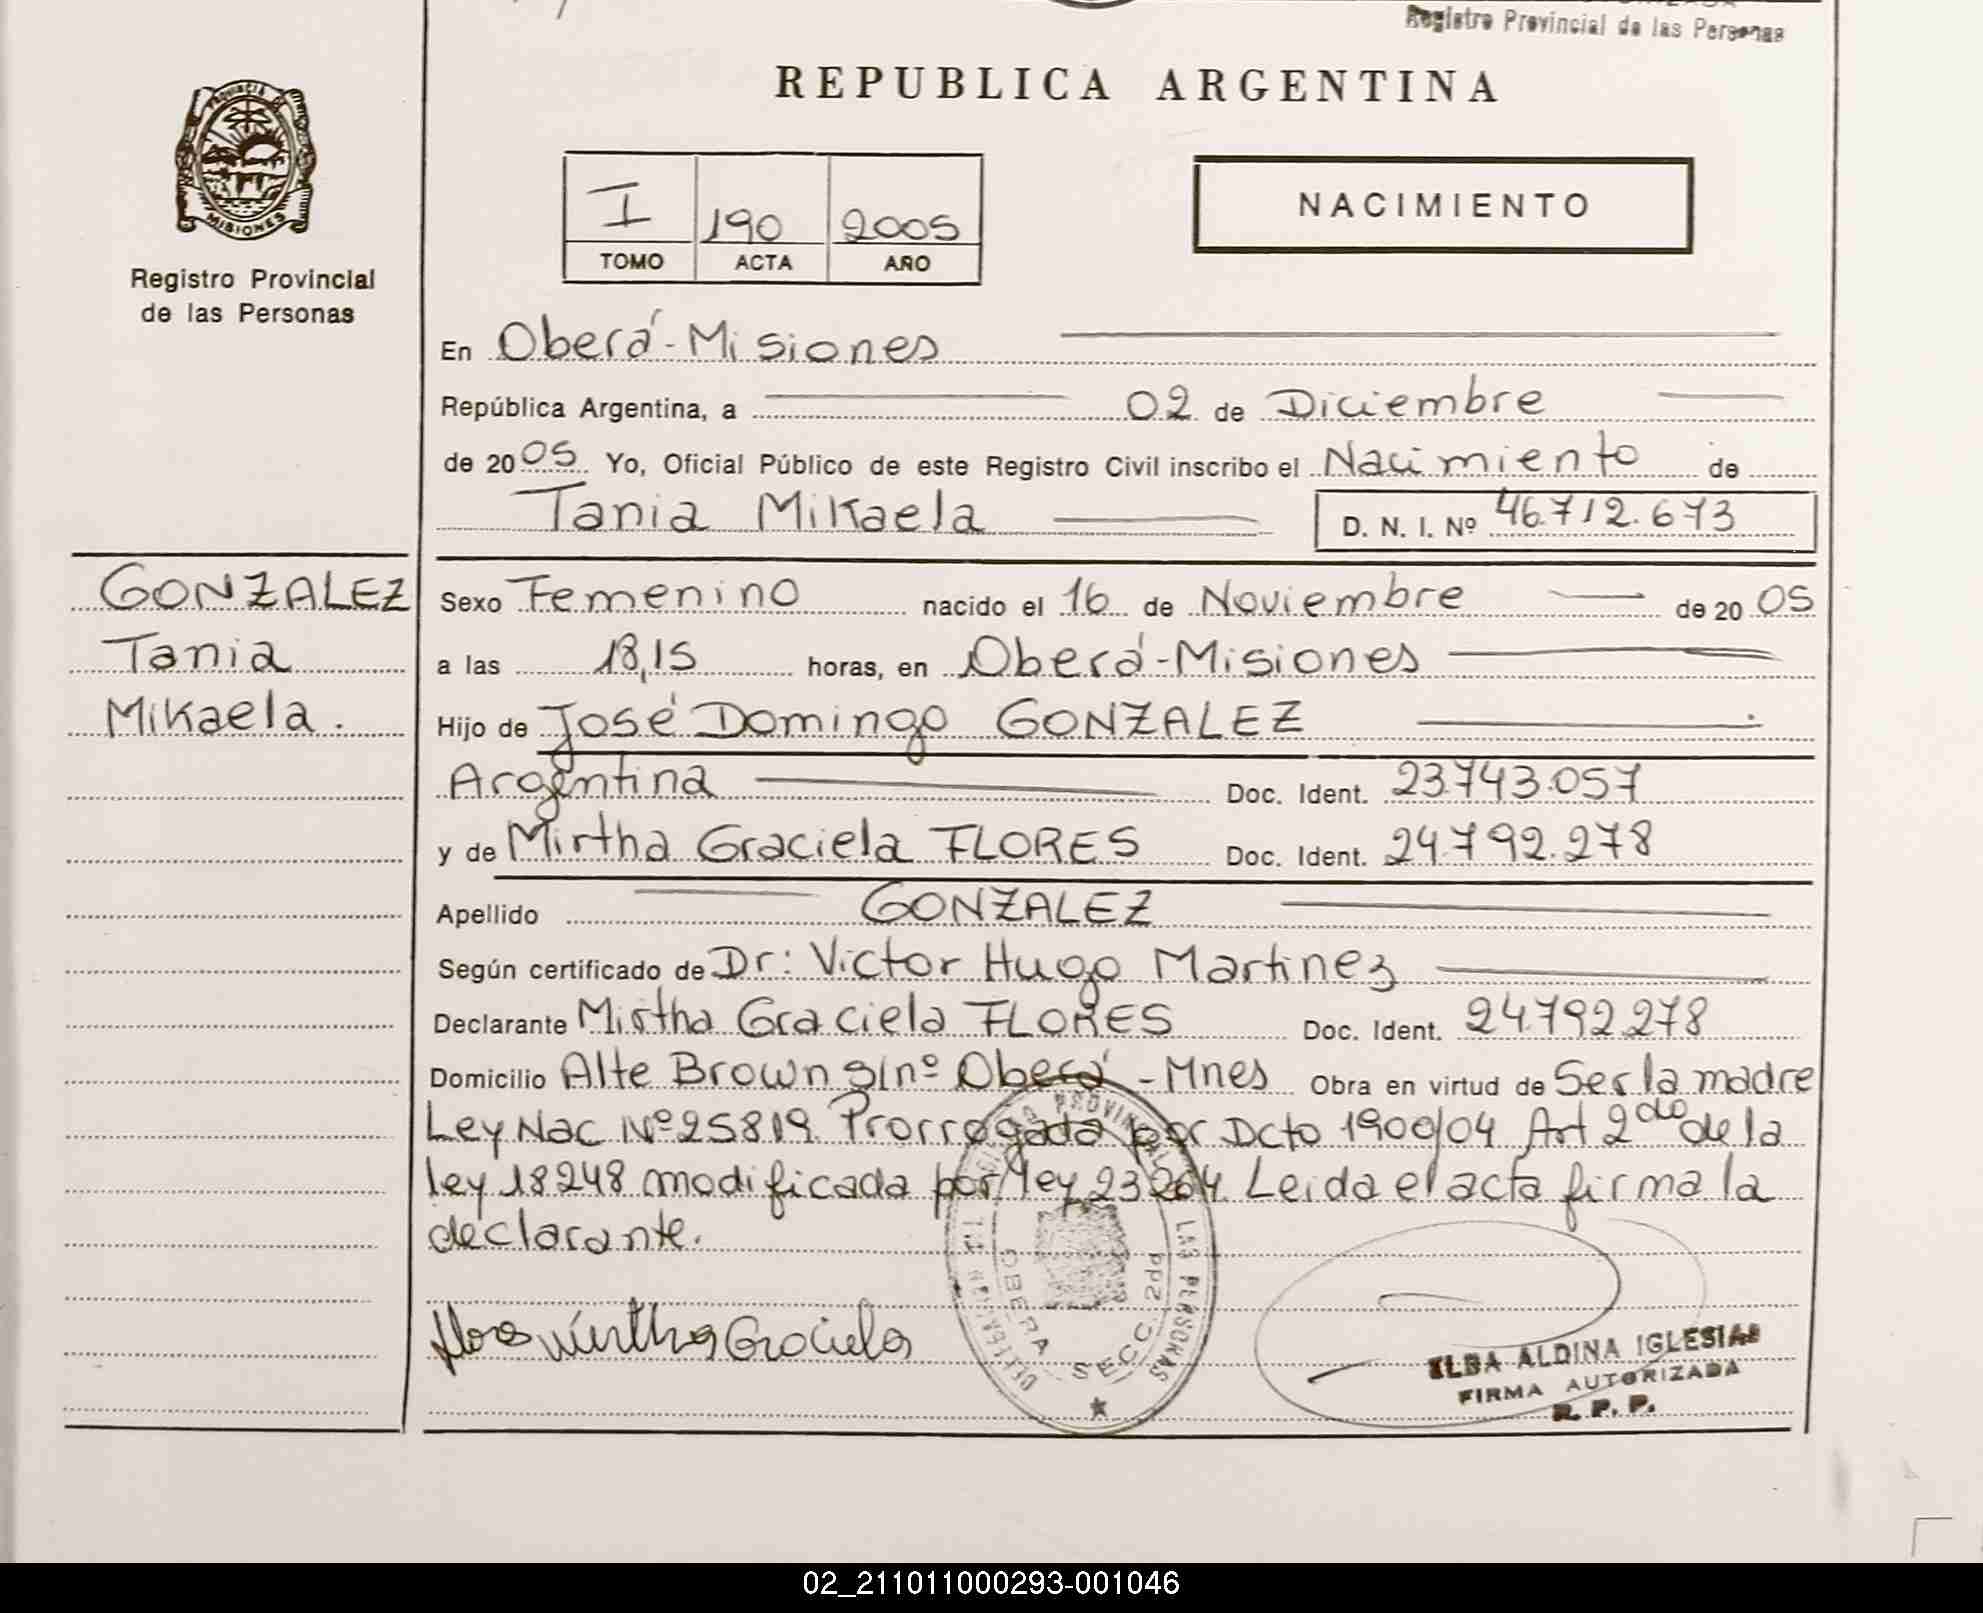 Registro Provincial de las Personas
REPUBLICA ARGENTINA
PROVINCIA DE
MISIONES
Registro Provincial
de las Personas
I 190 2005
TOMO ACTA AÑO
NACIMIENTO
En Oberá - Misiones
República Argentina, a 02 de Diciembre
de 2005 Yo, Oficial Público de este Registro Civil inscribo el Nacimiento de
Tania Mikaela D. N. I. Nº 46.712.673
GONZALEZ
Tania
Mikaela.
Sexo Femenino nacido el 16 de Noviembre de 2005
a las 18,15 horas, en Oberá - Misiones
Hijo de José Domingo GONZALEZ
Argentina Doc. Ident. 23.743.057
y de Mirtha Graciela FLORES Doc. Ident. 24.792.278
Apellido GONZALEZ
Según certificado de Dr: Victor Hugo Martinez
Declarante Mirtha Graciela FLORES Doc. Ident. 24.792.278
Domicilio Alte Brown s/nº Oberá - Mnes Obra en virtud de Ser la madre
Ley Nac Nº 25819. Prorrogada por Dcto 1900/04 Art 2do de la
ley 18248 modificada por ley 23264. Leida el acta firma la
declarante.
Flores Mirtha Graciela
PROVINCIAL LAS PERSONAS
OBERA SECC. 2da
ELBA ALDINA IGLESIAS
FIRMA AUTORIZADA
R. P. P.
02_211011000293-001046